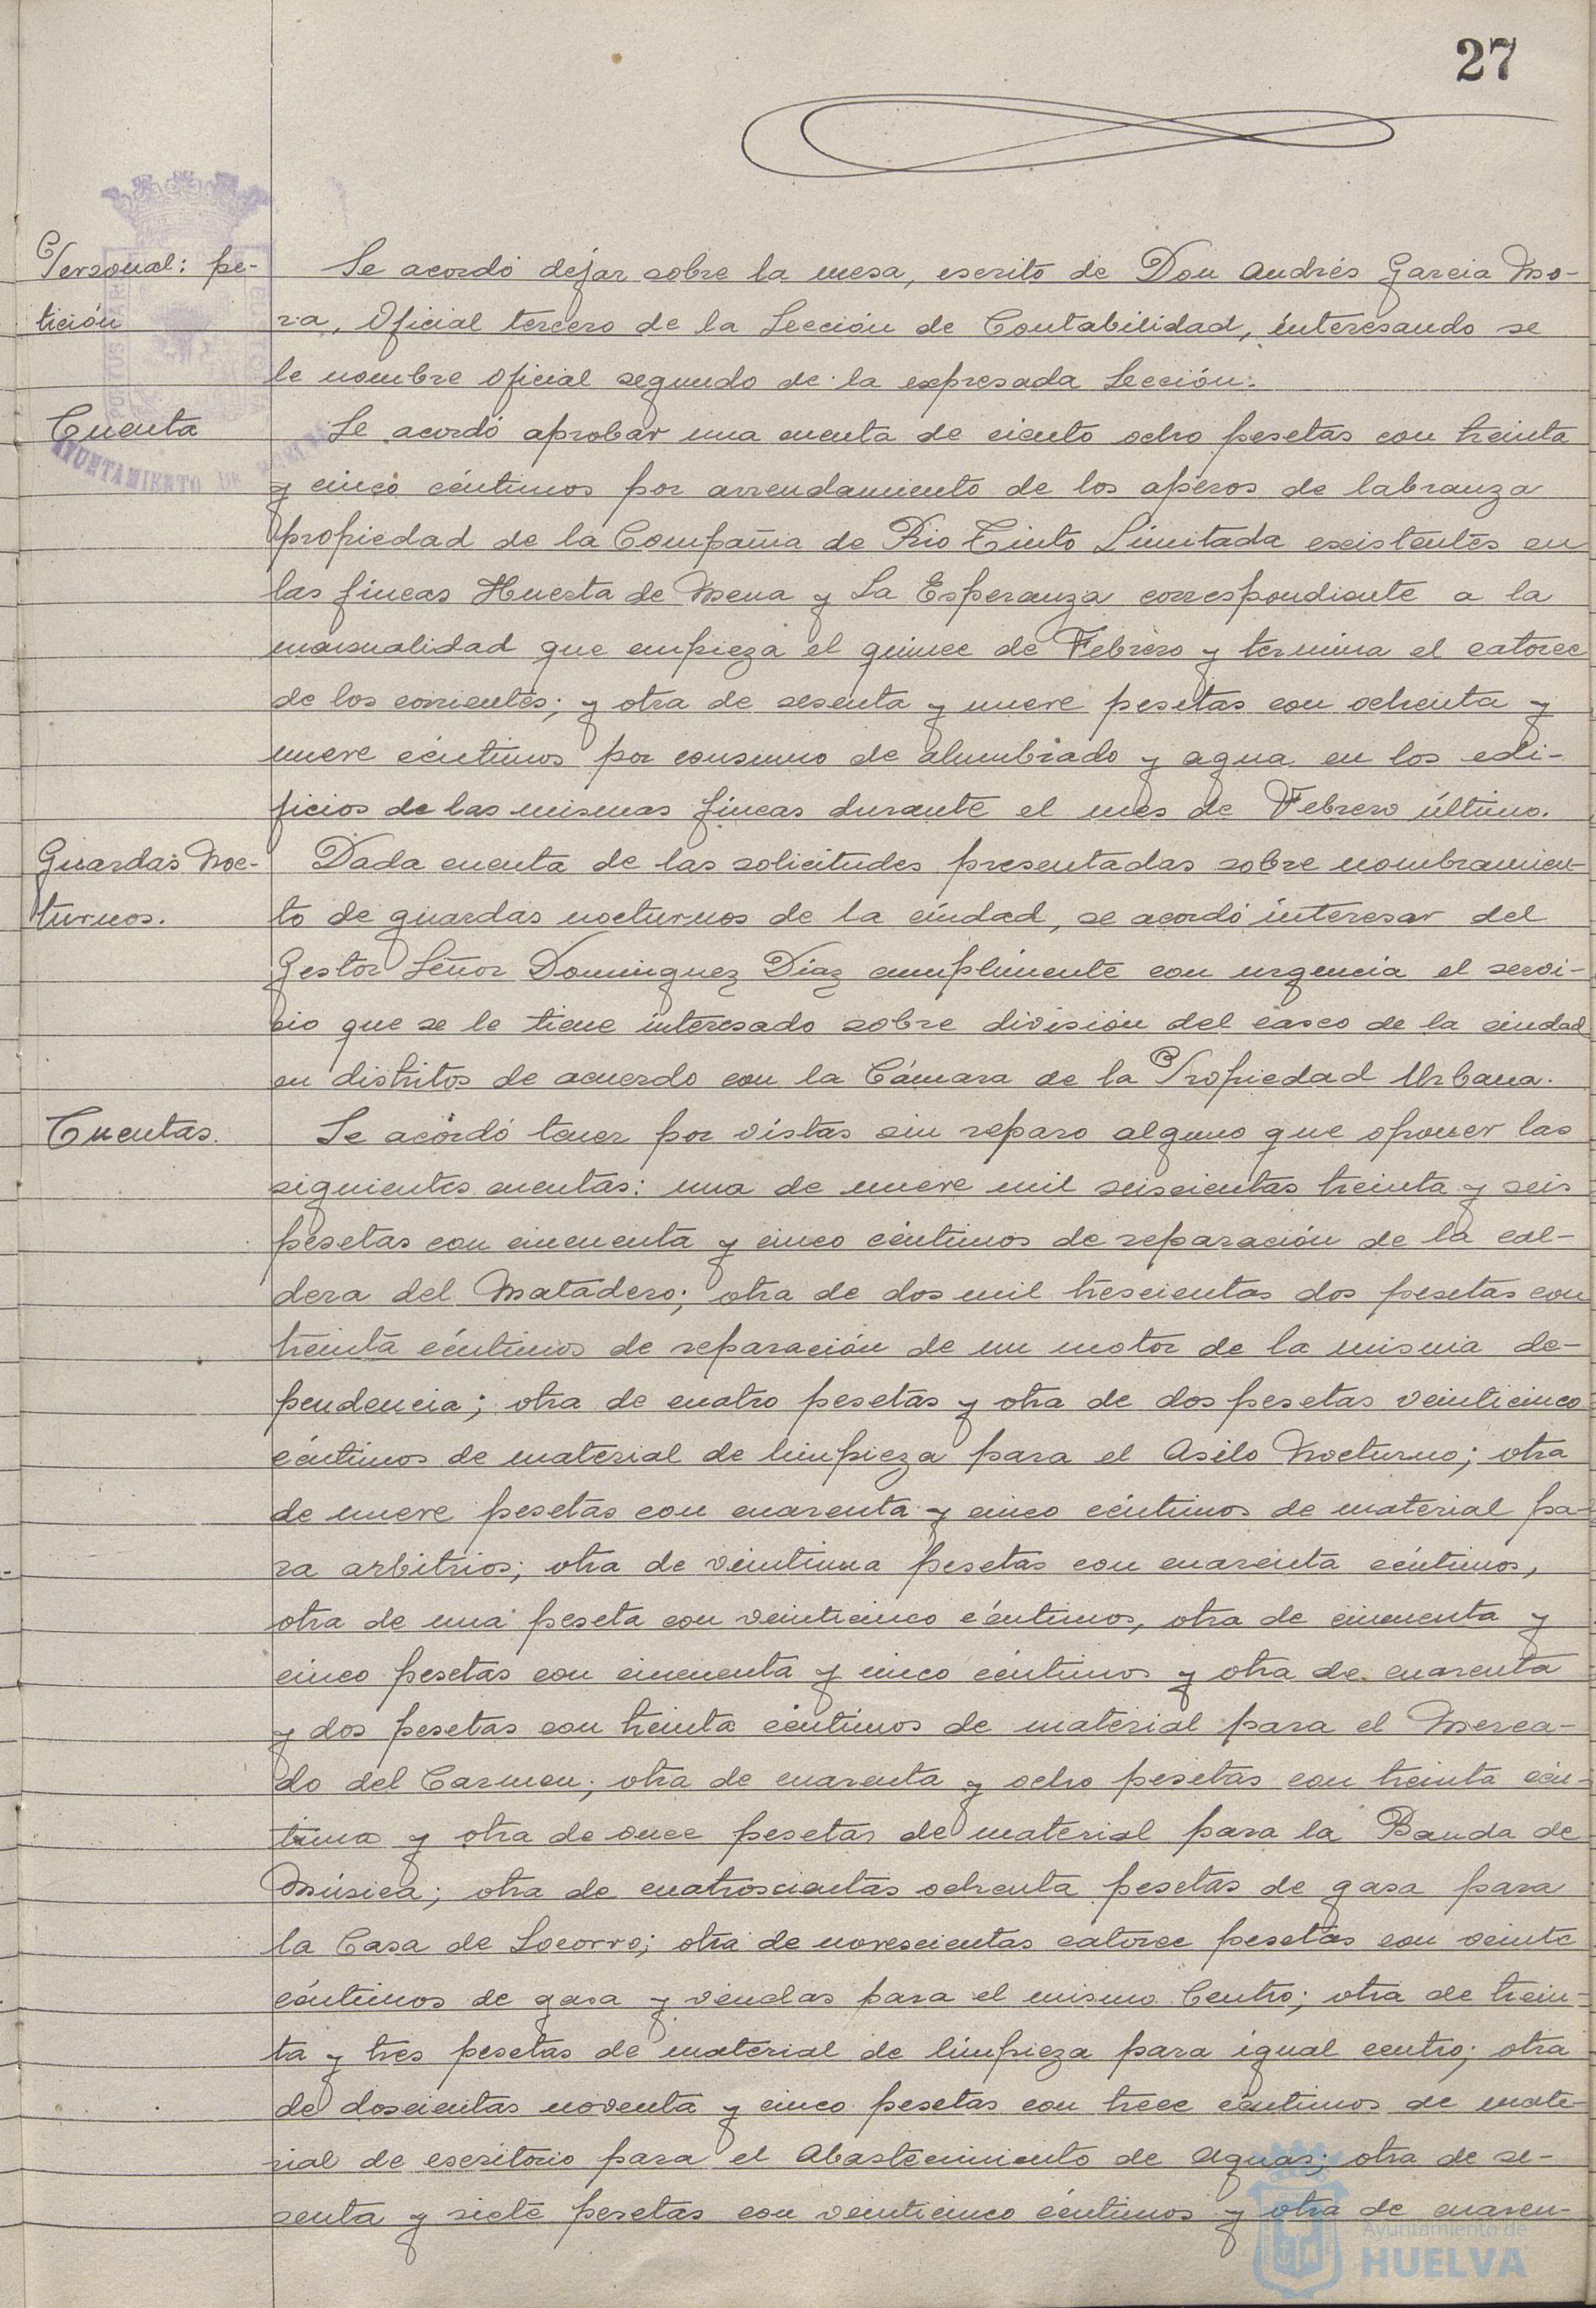 27
Personal: pe-
tición
Se acordó dejar sobre la mesa, escrito de Don Andrés Garcia Mo-
ra, Oficial tercero de la Sección de Contabilidad, interesando se
le nombre Oficial segundo de la expresada Sección.
Cuenta
Se acordó aprobar una cuenta de ciento ocho pesetas con treinta
y cinco céntimos por arrendamiento de los aperos de labranza
propiedad de la Compañia de Rio Tinto Limitada existentes en
las fincas Huerta de Mena y La Esperanza correspondiente a la
mensualidad que empieza el quince de Febrero y termina el catorce
de los corrientes; y otra de sesenta y nueve pesetas con ochenta y
nueve céntimos por consumo de alumbrado y agua en los edi-
ficios de las mismas fincas durante el mes de Febrero último.
Guardas Noc-
turnos.
Dada cuenta de las solicitudes presentadas sobre nombramien-
to de guardas nocturnos de la ciudad, se acordó interesar del
Gestor Señor Dominguez Diaz cumplimente con urgencia el servi-
cio que se le tiene interesado sobre división del casco de la ciudad
en distritos de acuerdo con la Cámara de la Propiedad Urbana.
Cuentas.
Se acordó tener por vistas sin reparo alguno que oponer las
siguientes cuentas: una de nueve mil seiscientas treinta y seis
pesetas con cincuenta y cinco céntimos de reparación de la cal-
dera del Matadero; otra de dos mil trescientas dos pesetas con
treinta céntimos de reparación de un motor de la misma de-
pendencia; otra de cuatro pesetas y otra de dos pesetas veinticinco
céntimos de material de limpieza para el Asilo Nocturno; otra
de nueve pesetas con cuarenta y cinco céntimos de material pa-
ra arbitrios; otra de veintiuna pesetas con cuarenta céntimos,
otra de una peseta con veinticinco céntimos, otra de cincuenta y
cinco pesetas con cincuenta y cinco céntimos y otra de cuarenta
y dos pesetas con treinta céntimos de material para el Merca-
do del Carmen; otra de cuarenta y ocho pesetas con treinta cén-
timos y otra de once pesetas de material para la Banda de
Música; otra de cuatroscientas ochenta pesetas de gasa para
la Casa de Socorro; otra de novescientas catorce pesetas con veinte
céntimos de gasa y vendas para el mismo Centro; otra de trein-
ta y tres pesetas de material de limpieza para igual centro; otra
de doscientas noventa y cinco pesetas con trece céntimos de mate-
rial de escritorio para el Abastecimiento de Aguas; otra de se-
senta y siete pesetas con veinticinco céntimos y otra de cuaren-
AYUNTAMIENTO DE
Ayuntamiento de
HUELVA